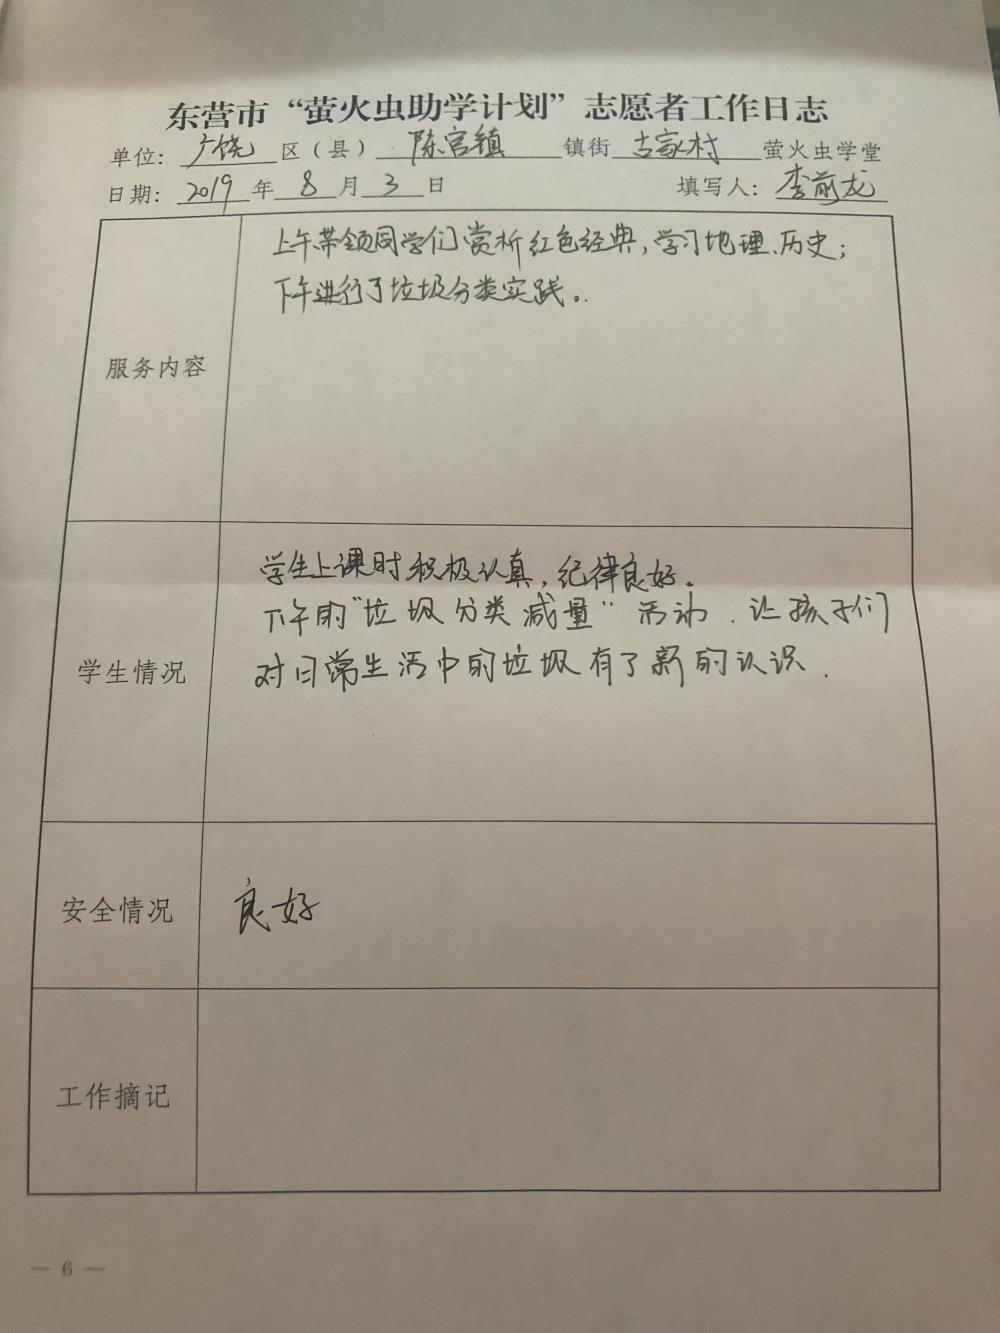 东营市“萤火虫助学计划”志愿者工作日志
单位：广饶区（县）陈官镇镇街古家村萤火虫学堂
日期：2019年8月3日 填写人：李前龙
服务内容
上午带领同学们赏析红色经典，学习地理、历史；
下午进行了垃圾分类实践。
学生情况
学生上课时积极认真，纪律良好。
下午的“垃圾分类减量”活动．让孩子们
对日常生活中的垃圾有了新的认识．
安全情况
良好
工作摘记
— 6 —